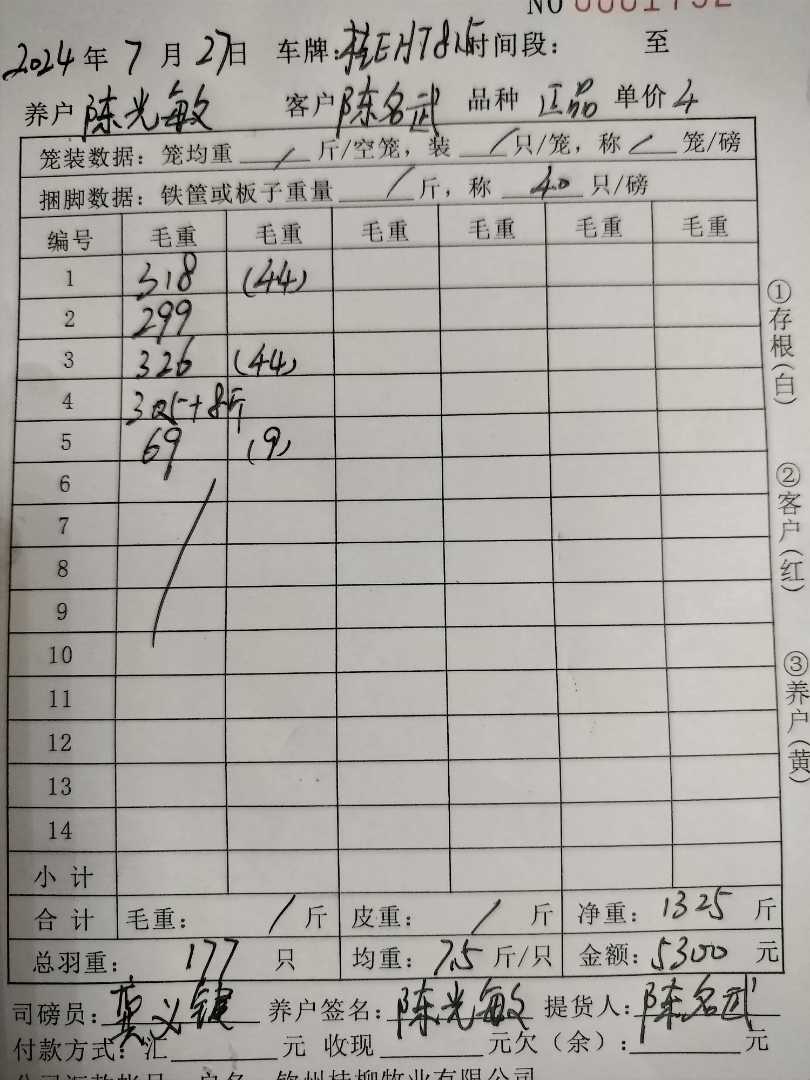 NO 0001792
2024年 7 月 27日 车牌:桂EHT815时间段: 至
养户 陈光敏 客户 陈名武 品种 正品 单价 4
笼装数据: 笼均重 / 斤/空笼, 装 / 只/笼, 称 / 笼/磅
捆脚数据: 铁筐或板子重量 / 斤, 称 40 只/磅
编号 毛重 毛重 毛重 毛重 毛重 毛重
1 318 (44)
2 299
3 326 (44)
4 305+8斤
5 69 (9)
6
7
8
9
10
11
12
13
14
小 计
合 计 毛重: / 斤 皮重: / 斤 净重: 1325 斤
总羽重: 177 只 均重: 7.5 斤/只 金额: 5300 元
司磅员: 养户签名: 陈光敏 提货人: 陈名武
付款方式: 汇 元 收现 元欠(余): 元
公司汇款帐号: 户名: 钦州桂柳牧业有限公司
①存根(白)
②客户(红)
③养户(黄)